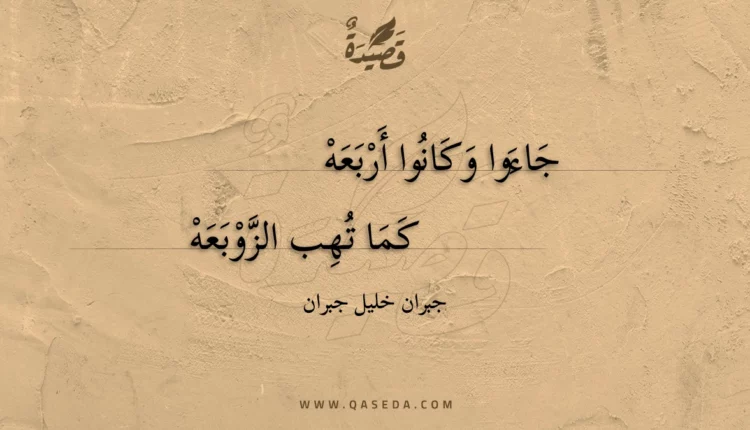 قَصِيدَةٌ
جَاءَوا وَكَانُوا أَرْبَعَهْ
كَمَا تُهِب الزَّوْبَعَهْ
جبران خليل جبران
WWW.QASEDA.COM